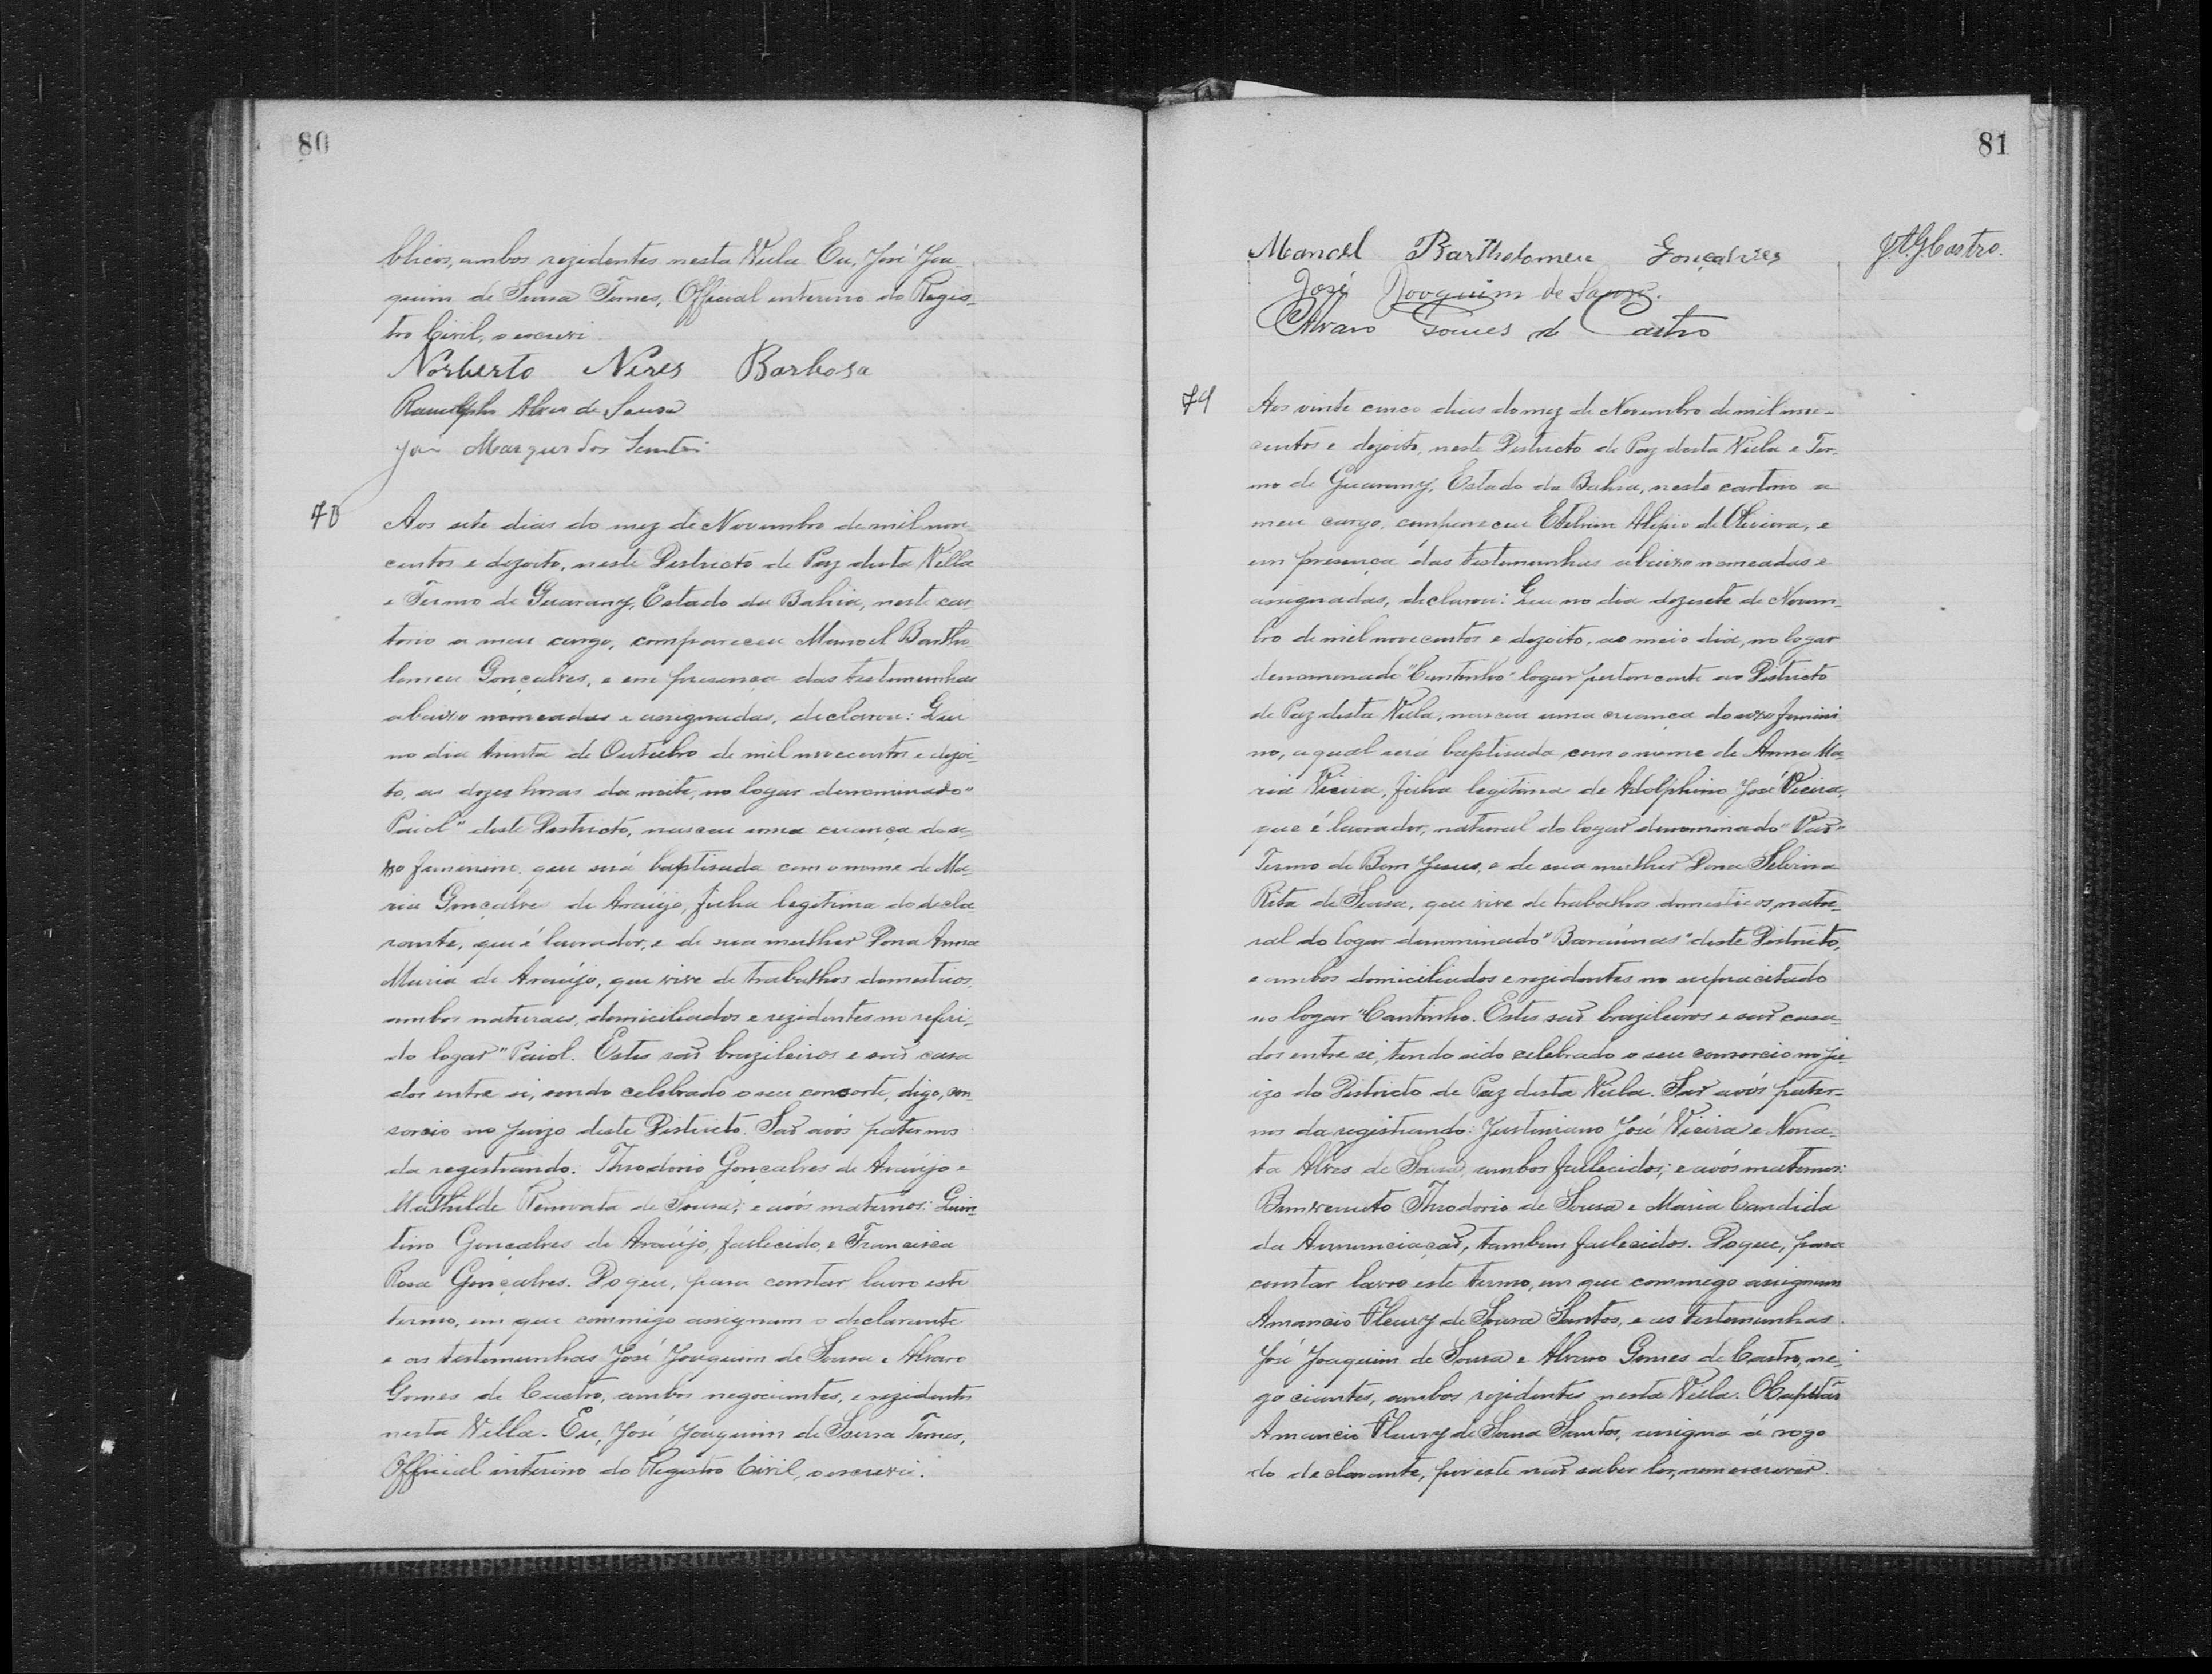 80
blicos, ambos rezidentes nesta Villa Eu, José Joa-
quim de Sousa Tunes, Official interino do Regis-
tro Civil, o escrevi.
Norberto Neres Barbosa
Ranulpho Alves de Sousa
José Marques dos Santos
70
Aos sete dias do mez de Novembro de mil nove
centos e dezoito, neste Districto de Paz desta Villa
e Termo de Guarany, Estado da Bahia, neste car
torio a meu cargo, compareceu Manoel Bartho
lomeu Gonçalves, e em presença das testemunhas
abaixo nomeadas e assignadas, declarou: Que
no dia trinta de Outubro de mil novecentos e dezoi-
to, as doze horas da noite, no logar denominado "
Paiol" deste Districto, nasceu uma criança do se-
xo femenino, que será baptisada com o nome de Ma-
ria Gonçalves de Araujo, filha legitima do decla-
rante, que é lavrador, e de sua mulher Dona Anna
Maria de Araujo, que vive de trabalhos domesticos,
ambos naturaes, domiciliados e rezidentes no referi-
do logar "Paiol. Estes são brazileiros e são casa
dos entre si, sendo celebrado o seu consorte, digo, con-
sorcio no Juizo deste Districto. São avós paternos
da registrando: Theodorio Gonçalves de Araujo e
Mathilde Renovata de Sousa; e avós maternos: Quin-
tino Gonçalves de Araujo, fallecido, e Francisca
Rosa Gonçalves. Do que, para constar, lavro este
termo, em que commigo assignam o declarante
e as testemunhas José Joaquim de Sousa e Alvaro
Gomes de Castro, ambos negociantes, e rezidentes
nesta Villa. Eu, José Joaquim de Sousa Tunes,
Official interino do Registro Civil, o escrevi.
81
Manoel Bartholomeu Gonçalves
José Joaquim de Sousa.
Alvaro Gomes de Castro
Castro.
Aos vinte cinco dias do mez de Novembro de mil nove-
centos e dezoito, neste Districto de Paz desta Villa e Ter-
mo de Guarany, Estado da Bahia, neste cartorio a
meu cargo, compareceu Alipio de Oliveira, e
em presença das testemunhas abaixo nomeadas e
assignadas, declarou: Que no dia dezesete de Novem-
bro de mil novecentos e dezoito, ao meio dia, no logar
denominado "Cantinho" logar pertencente ao Districto
de Paz desta Villa, nasceu uma criança do sexo femini
no, a qual será baptisada com o nome de Anna Ma-
ria Vieira, filha legitima de Adolphino José Vieira,
que é lavrador, natural do logar denominado
Termo de Bom Jesus, e de sua mulher Dona
Rita de Sousa, que vive de trabalhos domesticos, natu-
ral do logar denominado "Baraúnas" deste Districto,
e ambos domiciliados e rezidentes no supracitado
no logar "Cantinho. Estes são brazileiros e são casa-
dos entre si, tendo sido celebrado o seu consorcio no ju-
izo do Districto de Paz desta Villa. São avós pater-
nos da registrando: Justiniano José Vieira e Nona-
ta Alves de Sousa, ambos fallecidos; e avós maternos:
Bemvenuto Theodorio de Sousa e Maria Candida
da Annunciação, tambem fallecidos. Do que, para
constar lavro este termo, em que commigo assignam
Amancio Fleury de Sousa Santos, e as testemunhas
José Joaquim de Sousa e Alvaro Gomes de Castro, ne-
gociantes, ambos rezidentes nesta Villa. O Capitão
Amancio Fleury de Sousa Santos, assigna á rogo
do declarante, por este não saber ler, nem escrever.